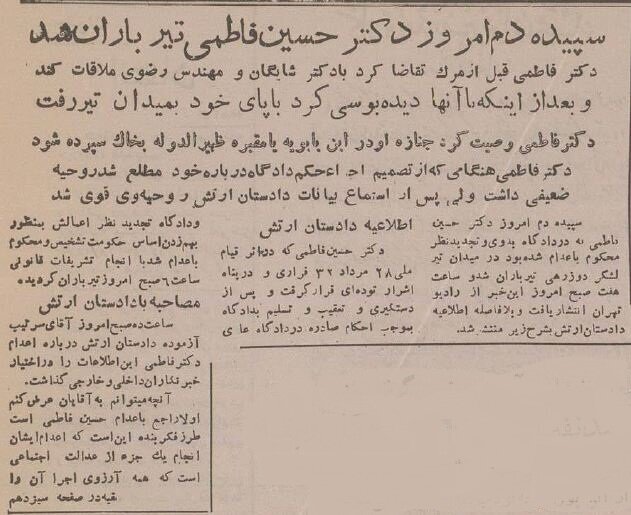 سپیده دم امروز دکتر حسین فاطمی تیرباران شد
دکتر فاطمی قبل از مرك تقاضا کرد با دکتر شایگان و مهندس رضوی ملاقات کند
و بعد از اینکه با آنها دیده بوسی کرد با پای خود بمیدان تیر رفت
دکتر فاطمی وصیت کرد جنازه او در ابن بابویه یا مقبره ظهیرالدوله بخاك سپرده شود
دکتر فاطمی هنگامی که از تصمیم اجراء حکم دادگاه درباره خود مطلع شد روحیه
ضعیفی داشت ولی پس از استماع بیانات دادستان ارتش روحیه وی قوی شد
سپیده دم امروز دکتر حسین
فاطمی که در دادگاه بدوی و تجدید نظر
محکوم باعدام شده بود در میدان تیر
لشگر دو زرهی تیرباران شد و ساعت
هفت صبح امروز این خبر از رادیو
تهران انتشار یافت و بلافاصله اطلاعیه
دادستان ارتش بشرح زیر منتشر شد.
اطلاعیه دادستان ارتش
دکتر حسین فاطمی که در اثر قیام
ملی ۲۸ مرداد ۳۲ فراری و در پناه
اشرار توده‌ای قرار گرفت و پس از
دستگیری و تعقیب و تسلیم بدادگاه
بموجب احکام صادره در دادگاه عادی
و دادگاه تجدید نظر اعمالش بمنظور
بهم زدن اساس حکومت تشخیص و محکوم
باعدام شد با انجام تشریفات قانونی
ساعت ۶ صبح امروز تیرباران گردیده
مصاحبه با دادستان ارتش
ساعت ده صبح امروز آقای سرتیپ
آزموده دادستان ارتش درباره اعدام
دکتر فاطمی این اطلاعات را در اختیار
خبرنگاران داخلی و خارجی گذاشت.
آنچه میتوانم به آقایان عرض کنم
اولا راجع باعدام حسین فاطمی است
طرز فکر بنده این است که اعدام ایشان
انجام یك جزء از عدالت اجتماعی
است که همه آرزوی اجرا آن را
بقیه در صفحه سیزدهم